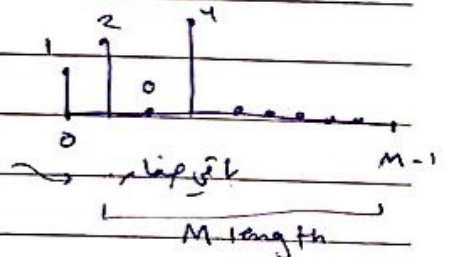 1 2 0 4
0 M-1
باقي صفار
M length